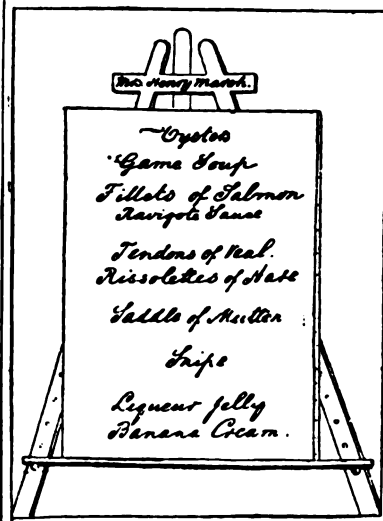 Mrs Henry Marsh.
Oysters
Game Soup
Fillets of Salmon
Ravigote Sauce
Tendons of Veal.
Rissolettes of Hare
Saddle of Mutton
Snipe
Liqueur Jelly
Banana Cream.